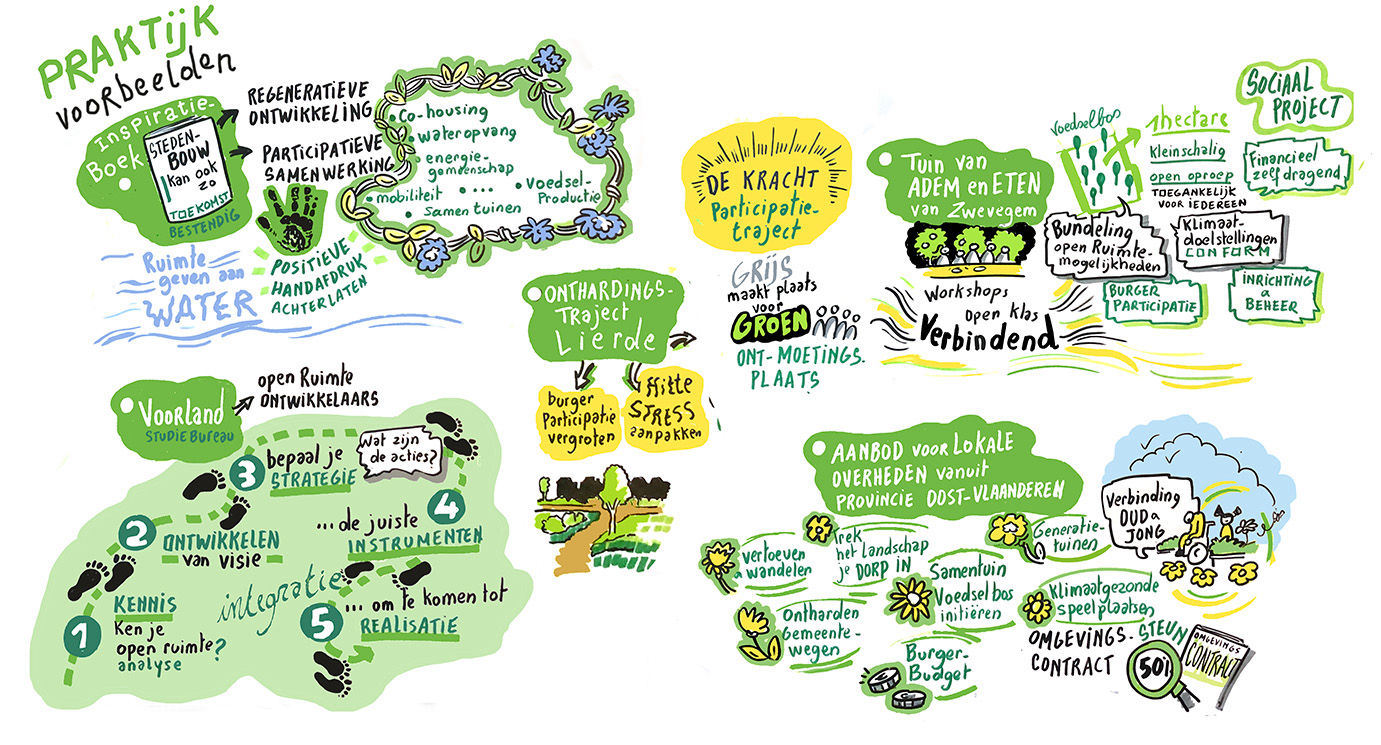 PRAKTIJK
voorbeelden
Inspiratie-
Boek
STEDEN-
BOUW
kan ook
zo
TOEKOMST
BESTENDIG
REGENERATIEVE
ONTWIKKELING
PARTICIPATIEVE
SAMENWERKING
Co-housing
wateropvang
energie-
gemeenschap
mobiliteit
...
Voedsel-
Productie
Samen tuinen
Ruimte
geven aan
WATER
POSITIEVE
HANDAFDRUK
ACHTERLATEN
Voorland
STUDIEBUREAU
open Ruimte
ONTWIKKELAARS
1
KENNIS
Ken je
open ruimte?
analyse
2
ONTWIKKELEN
van visie
3
bepaal je
STRATEGIE
Wat zijn
de acties?
4
...de juiste
INSTRUMENTEN
integratie
5
... om te komen tot
REALISATIE
ONTHARDINGS-
TRAject
Lierde
burger
Participatie
vergroten
Hitte
STRESS
aanpakken
DE KRACHT
Participatie-
traject
GRIJS
maakt plaats
voor
GROEN
ONT-MOETINGS-
PLAATS
Tuin van
ADEM en ETEN
van Zwevegem
Workshops
open klas
Verbindend
Voedselbos
1hectare
Kleinschalig
open oproep
TOEGANKELIJK
VOOR IEDEREEN
SOCIAAL
PROJECT
Financieel
zelfdragend
Bundeling
open Ruimte-
mogelijkheden
Klimaat-
doelstellingen
CONFORM
BURGER
PARTICIPATIE
INRICHTING
&
BEHEER
AANBOD voor LOKALE
OVERHEDEN vanuit
PROVINCIE OOST-VLAANDEREN
vertoeven
& wandelen
Trek
het Landschap
je DORP IN
Generatie-
tuinen
Samentuin
Voedselbos
initiëren
Klimaatgezonde
speelplaatsen
Ontharden
Gemeente-
wegen
Burger-
Budget
OMGEVINGS-
CONTRACT
STEUN
50%
OMGEVINGS
CONTRACT
Verbinding
OUD &
JONG